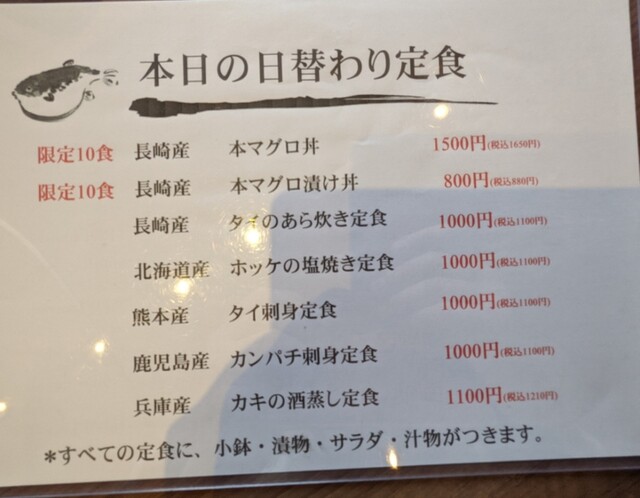 本日の日替わり定食
限定10食 長崎産 本マグロ丼 1500円(税込1650円)
限定10食 長崎産 本マグロ漬け丼 800円(税込880円)
長崎産 タイのあら炊き定食 1000円(税込1100円)
北海道産 ホッケの塩焼き定食 1000円(税込1100円)
熊本産 タイ刺身定食 1000円(税込1100円)
鹿児島産 カンパチ刺身定食 1000円(税込1100円)
兵庫産 カキの酒蒸し定食 1100円(税込1210円)
*すべての定食に、小鉢・漬物・サラダ・汁物がつきます。